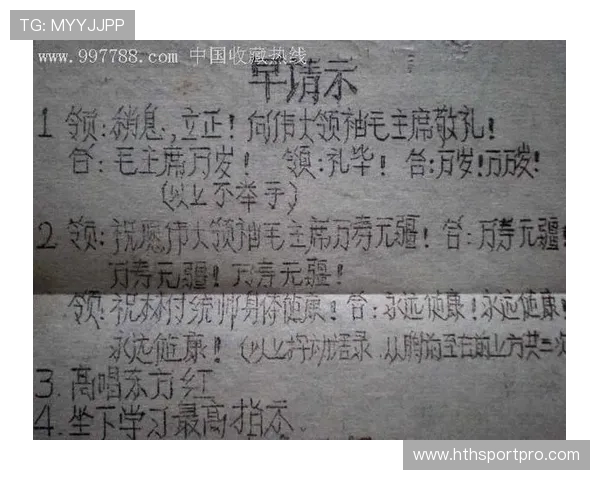 TG: MYYJJPP
www.997788.com 中国收藏热线
早请示
1 领:稍息,立正!向伟大领袖毛主席敬礼!
答:毛主席万岁! 领:礼毕! 答:万岁!万万岁!
(以上不举手)
2 领:祝愿伟大领袖毛主席万寿无疆! 答:万寿无疆!
万寿无疆!万寿无疆!
领:祝林付统帅身体健康!答:永远健康!永远健康!
永远健康!(以上挥动语录,从胸前至右前上方共三次
3. 高唱东方红
4. 坐下学习最高指示
www.hthsportpro.com